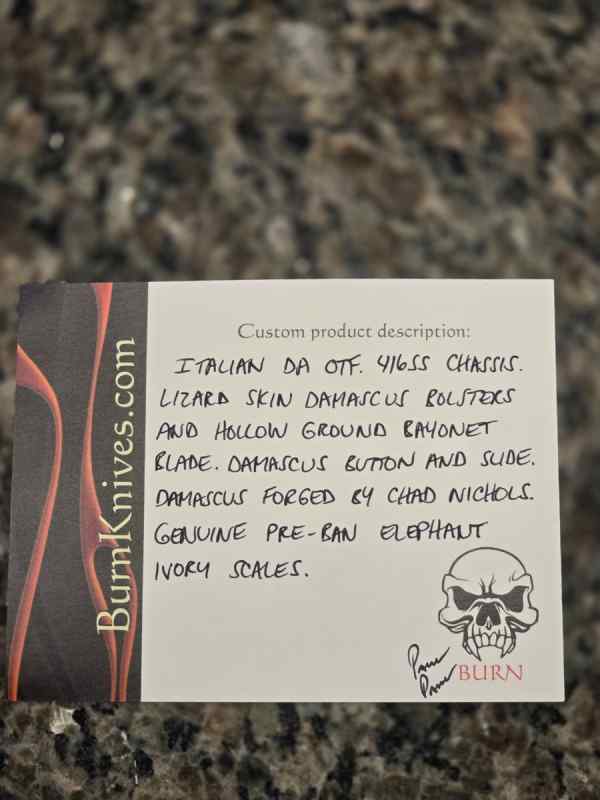 BurnKnives.com
Custom product description:
ITALIAN DA OTF. 416SS CHASSIS.
LIZARD SKIN DAMASCUS BOLSTERS
AND HOLLOW GROUND BAYONET
BLADE. DAMASCUS BUTTON AND SLIDE.
DAMASCUS FORGED BY CHAD NICHOLS.
GENUINE PRE-BAN ELEPHANT
IVORY SCALES.
BURN